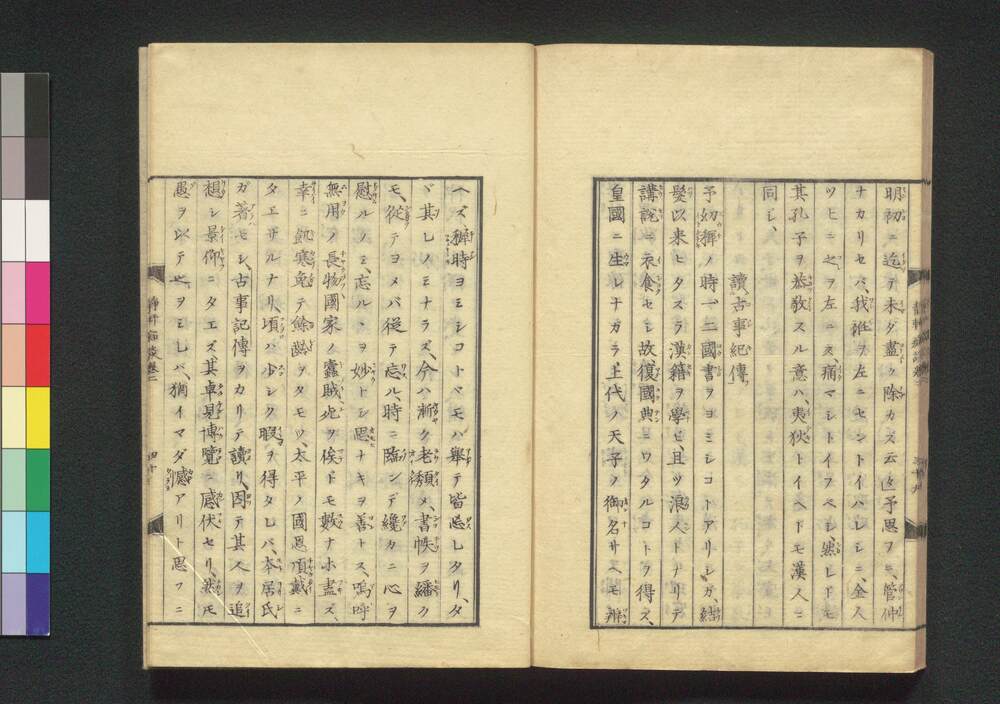 明初ニ迄テ未ダ盡ク除カズ云〻予思フニ、管仲
ナカリセバ、我雒ヲ左ニセントイハレシニ、金人
ツヒニ之ヲ左ニス、痛マシトイフベシ、然レドモ
其孔子ヲ恭敬スル意ハ、夷狄トイヘドモ漢人ニ
同シ、
讀古事紀傳
予幼穉ノ時一二國書ヲヨミシコトアリシガ、結
髮以来ヒタスラ漢籍ヲ學ビ、且ツ浪人トナリテ
講說ニ衣食セシ故、復國典ニワタルコトヲ得ズ、
皇國ニ生レナガラ、王代ノ天子ノ御名サヘモ辨
ヘズ、穉時ヨミシコトドモハ舉テ皆忘レタリ、タ
ゞ其レノミナラズ、今ハ漸ク老頽メ、書帙ヲ繙ク
モ、從テヨメバ從テ忘ル、時ニ臨ンデ纔カニ心ヲ
慰ルノミ、忘ルヽヲ妙トシ思ナキヲ善トス、嗚呼
無用ノ長物國家ノ蠹賊死ヲ俟ドモ數ナホ盡ズ、
幸ニ飢寒免テ餘齡ヲタモツ、太平ノ國恩頂戴ニ
タエザルナリ、頃ハ少シク暇ヲ得タレバ、本居氏
ガ著セシ、古事記傳ヲカリテ讀リ、因テ其人ヲ追
想シ景仰ニタエズ、其卓見博覽ニ感伏セリ、然モ
愚ヲ以テ之ヲミレバ、猶イマダ憾アリト思フニ